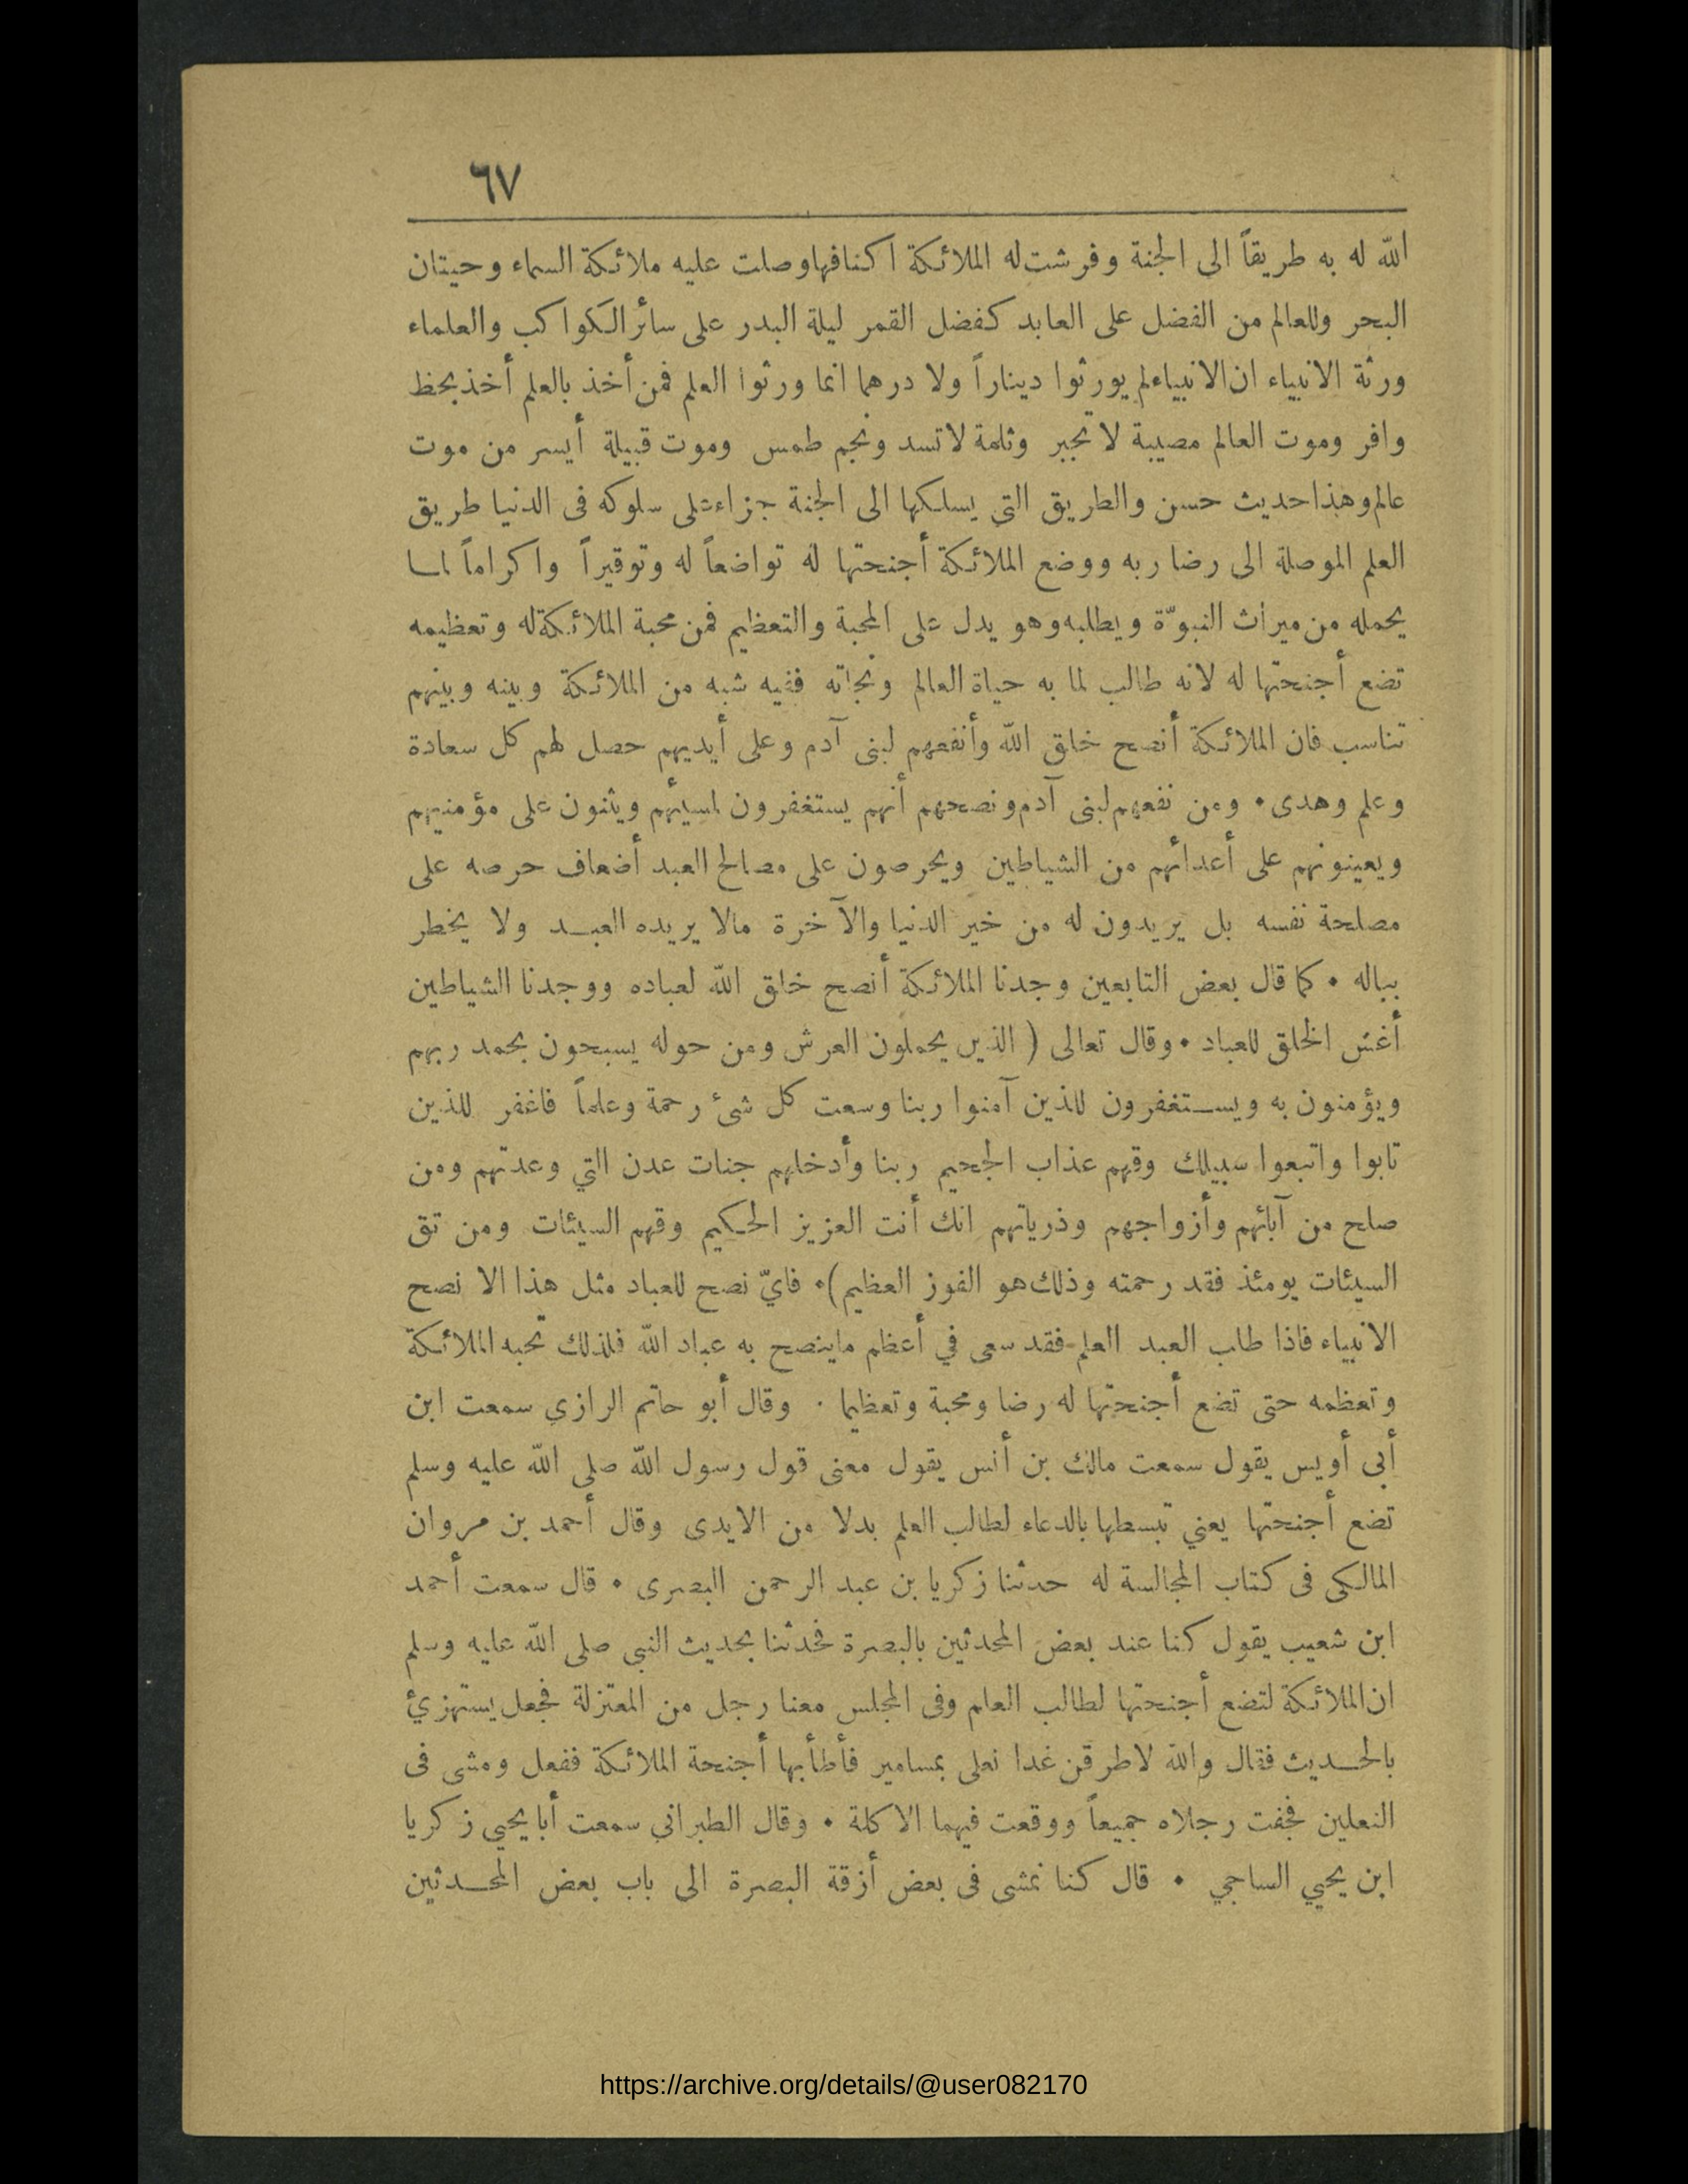 ٦٧
الله له به طريقاً الى الجنة وفرشت له الملائكة اكنافها وصلت عليه ملائكة السماء وحيتان
البحر وللعالم من الفضل على العابد كفضل القمر ليلة البدر على سائر الكواكب والعلماء
ورثة الانبياء ان الانبياء لم يورثوا ديناراً ولا درهما انما ورثوا العلم فمن أخذ بالعلم أخذ بحظ
وافر وموت العالم مصيبة لا تجبر وثلمة لا تسد ونجم طمس وموت قبيلة أيسر من موت
عالم وهذا حديث حسن والطريق التي يسلكها الى الجنة جزاء على سلوكه فى الدنيا طريق
العلم الموصلة الى رضا ربه ووضع الملائكة أجنحتها له تواضعاً له وتوقيراً واكراماً لما
يحمله من ميراث النبوّة ويطلبه وهو يدل على المحبة والتعظيم فمن محبة الملائكة له وتعظيمه
تضع أجنحتها له لانه طالب لما به حياة العالم ونجاته ففيه شبه من الملائكة وبينه وبينهم
تناسب فان الملائكة أنصح خلق الله وأنفعهم لبنى آدم وعلى أيديهم حصل لهم كل سعادة
وعلم وهدى • ومن نفعهم لبنى آدم ونصحهم أنهم يستغفرون لمسيئهم ويثنون على مؤمنيهم
ويعينونهم على أعدائهم من الشياطين ويحرصون على مصالح العبد أضعاف حرصه على
مصلحة نفسه بل يريدون له من خير الدنيا والآخرة مالا يريده العبد ولا يخطر
بباله • كما قال بعض التابعين وجدنا الملائكة أنصح خلق الله لعباده ووجدنا الشياطين
أغش الخلق للعباد • وقال تعالى ( الذين يحملون العرش ومن حوله يسبحون بحمد ربهم
ويؤمنون به ويستغفرون للذين آمنوا ربنا وسعت كل شئ رحمة وعلماً فاغفر للذين
تابوا واتبعوا سبيلك وقهم عذاب الجحيم ربنا وأدخلهم جنات عدن التي وعدتهم ومن
صلح من آبائهم وأزواجهم وذرياتهم انك أنت العزيز الحكيم وقهم السيئات ومن تق
السيئات يومئذ فقد رحمته وذلك هو الفوز العظيم) • فايّ نصح للعباد مثل هذا الا نصح
الانبياء فاذا طلب العبد العلم فقد سعى في أعظم ماينصح به عباد الله فلذلك تحبه الملائكة
وتعظمه حتى تضع أجنحتها له رضا ومحبة وتعظيما • وقال أبو حاتم الرازي سمعت ابن
أبى أويس يقول سمعت مالك بن أنس يقول معنى قول رسول الله صلى الله عليه وسلم
تضع أجنحتها يعني تبسطها بالدعاء لطالب العلم بدلا من الايدى وقال أحمد بن مروان
المالكى فى كتاب المجالسة له حدثنا زكريا بن عبد الرحمن البصرى • قال سمعت أحمد
ابن شعيب يقول كنا عند بعض المحدثين بالبصرة فحدثنا بحديث النبى صلى الله عليه وسلم
ان الملائكة لتضع أجنحتها لطالب العلم وفى المجلس معنا رجل من المعتزلة فجعل يستهزئ
بالحديث فقال والله لاطرقن غدا نعلى بمسامير فأطأ بها أجنحة الملائكة ففعل ومشى فى
النعلين فجفت رجلاه جميعاً ووقعت فيهما الاكلة • وقال الطبراني سمعت أبا يحيى زكريا
ابن يحيي الساجي • قال كنا نمشى فى بعض أزقة البصرة الى باب بعض المحدثين
https://archive.org/details/@user082170